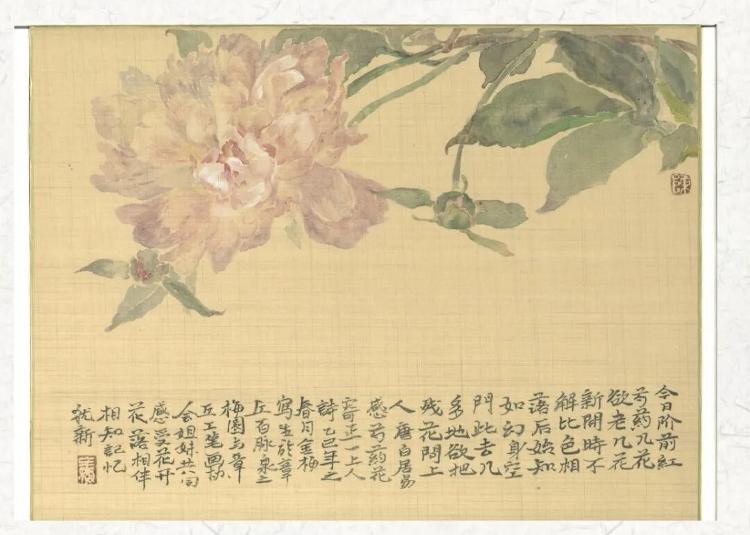 今日阶前紅
芍药几花
欲老几花
新開時不
解比色相
落后始知
如幻身空
門此去几
多地欲把
残花問上
人唐白居易
感芍药花
寄正一上人
詩乙巳年之
春月金梅
寫生於章
丘百脉泉之
梅園与章
丘工笔画協
会姐妹共同
感受花开
花落相伴
相知記忆
就新